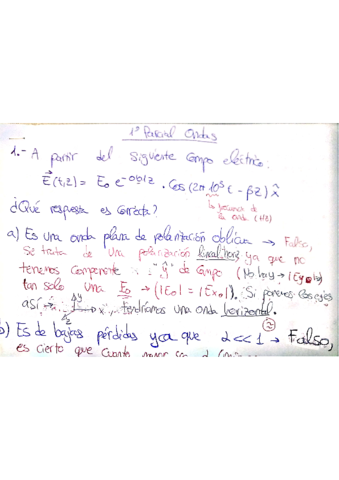 1º Parcial Ondas
1.- A partir del siguiente campo eléctrico:
E(t,z) = E₀ e^-0'01z · Cos(2π 10³ t - βz) x̂
la frecuencia de
la onda (Hz)
¿Qué respuesta es correcta?
a) Es una onda plana de polarización oblicua → Falso,
se trata de una polarización lineal ya que no
tenemos componente "ŷ" de campo (No hay → |Ey₀|)
tan solo una E₀ → (|E₀| = |Ex₀|). Si ponemos los ejes
así, tendríamos una onda horizontal.
b) Es de bajas pérdidas ya que α << 1 → Falso,
es cierto que cuanto